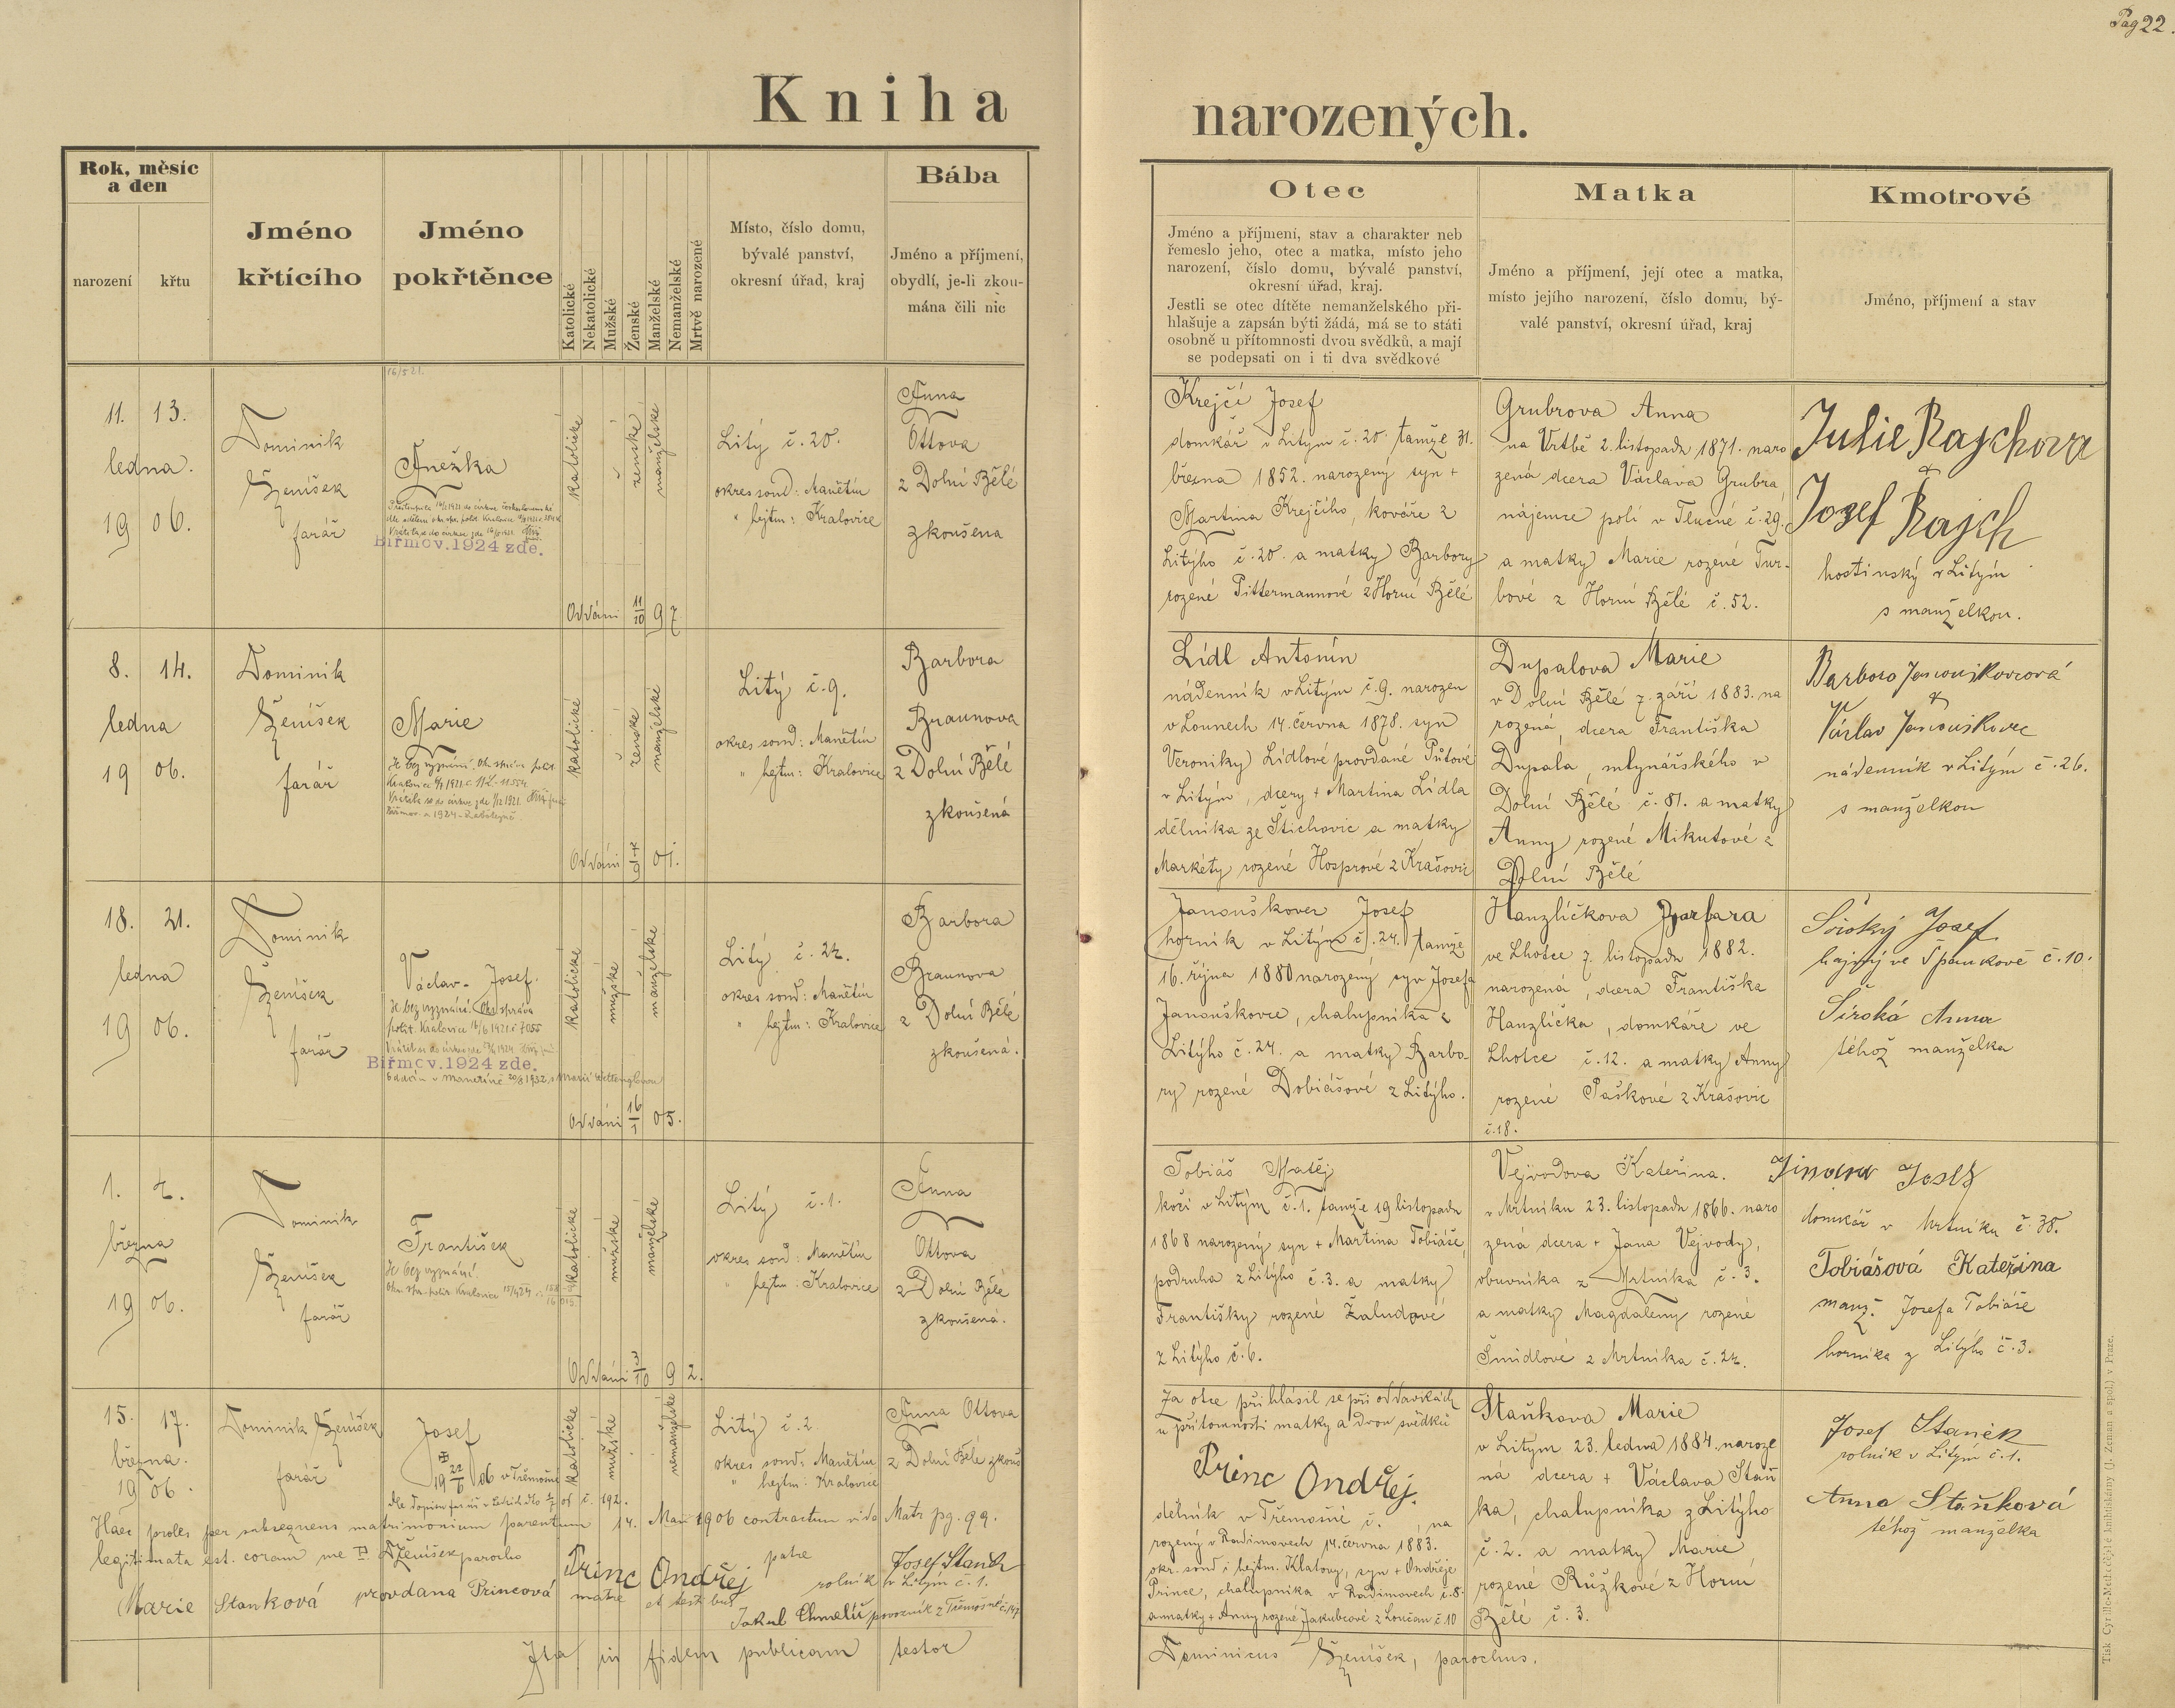 Pag 22.
Kniha narozených.
Rok, měsíc
a den
narození
křtu
Jméno
křtícího
Jméno
pokřtěnce
Katolické
Nekatolické
Mužské
Ženské
Manželské
Nemanželské
Mrtvě narozené
Místo, číslo domu,
bývalé panství,
okresní úřad, kraj
Bába
Jméno a příjmení,
obydlí, je-li zkou-
mána čili nic
Otec
Jméno a příjmení, stav a charakter neb
řemeslo jeho, otec a matka, místo jeho
narození, číslo domu, bývalé panství,
okresní úřad, kraj.
Jestli se otec dítěte nemanželského při-
hlašuje a zapsán býti žádá, má se to státi
osobně u přítomnosti dvou svědků, a mají
se podepsati on i ti dva svědkové
Matka
Jméno a příjmení, její otec a matka,
místo jejího narození, číslo domu, bý-
valé panství, okresní úřad, kraj
Kmotrové
Jméno, příjmení a stav
11. 13.
ledna.
19 06.
Dominik
Ženíšek
farář
16/5 21.
Anežka
Biřmov. 1924 zde.
katolické
ženské
manželské
Oddáni 11/10 97
Litý č. 20.
okres soud: Manětín
" hejtm: Kralovice
Anna
Ottova
z Dolní Bělé
zkoušena
Krejčí Josef
domkář v Litým č. 20. tamže 31.
března 1852. narozený syn +
Martina Krejčího, kováře z
Litýho č. 20. a matky Barbory
rozené Pittermannové z Horní Bělé
Grubrova Anna
na Vrtbě 2. listopadu 1871. naro
zená dcera Václava Grubra,
nájemce polí v Tlucné č. 29.
a matky Marie rozené Tur-
bové z Horní Bělé č. 52.
Julie Rajchova
+
Jozef Rajch
hostinský v Litým
s manželkou.
8. 14.
ledna
19 06.
Dominik
Ženíšek
farář
Marie
Je bez vyznání.
katolické
ženské
manželské
Oddáni 01.
Litý č. 9.
okres soud: Manětín
" hejtm: Kralovice
Barbora
Braunova
z Dolní Bělé
zkoušená
Lídl Antonín
nádenník v Litým č. 9. narozen
v Lounech 14. června 1878. syn
Veroniky Lídlové provdané
v Litým, dcery + Martina Lídla
dělníka ze Štichovic a matky
Markéty rozené Hosprové z Krašovic
Dupalova Marie
v Dolní Bělé 7. září 1883. na
rozená, dcera Františka
Dupala, mlynářského v
Dolní Bělé č. 81. a matky
Anny rozené Mikutové z
Dolní Bělé
Barbora Janouškovcová
+
Václav Janouškovec
nádenník v Litým č. 26.
s manželkou
18. 21.
ledna
19 06.
Dominik
Ženíšek
farář
Václav - Josef.
Je bez vyznání. Okr. správa
polit. Kralovice 14/6 1921 č 7055
Biřmov. 1924 zde.
katolické
mužské
manželské
Oddáni 16/1 05.
Litý č. 24.
okres soud: Manětín
" hejtm: Kralovice
Barbora
Braunova
z Dolní Bělé
zkoušená.
Janouškovec Josef
horník v Litým č. 24. tamže
16. října 1880 narozený syn Josefa
Janouškovce, chalupníka z
Litýho č. 24. a matky Barbo-
ry rozené Dobiášové z Litýho.
Hanzlíčkova Barbara
ve Lhotce 7. listopadu 1882.
narozená, dcera Františka
Hanzlíčka, domkáře ve
Lhotce č. 12. a matky Anny
rozené Paškové z Krašovic
č. 18.
Široký Josef
hajný ve Špankově č. 10.
Široká Anna
téhož manželka
1. 4.
března
19 06.
Dominik
Ženíšek
farář
František
Je bez vyznání.
katolické
mužské
manželské
Oddáni 3/10 92.
Litý č. 1.
okres soud: Manětín
" hejtm: Kralovice
Anna
Ottova
z Dolní Bělé
zkoušená.
Tobiáš Matěj
kočí v Litým č. 1. tamže 19 listopadu
1868 narozený syn + Martina Tobiáše,
podruha z Litýho č. 3. a matky
Františky rozené Žaludové
z Litýho č. 6.
Vejvodova Kateřina.
v Mrtníku 23. listopadu 1866. naro
zená dcera + Jana Vejvody,
obuvníka z Mrtníka č. 3.
a matky Magdaleny rozené
Šmidlové z Mrtníka č. 24.
Josef
domkář v Mrtníku č. 38.
Tobiášová Kateřina
manž. Josefa Tobiáše
horníka z Litýho č. 3.
15. 17.
března.
19 06.
Dominik Ženíšek
farář
Josef
19 22/6 06 v Třemošné
katolické
mužské
nemanželské
Litý č. 2
okres soud: Manětín
" hejtm: Kralovice
Anna Ottova
z Dolní Bělé zkouš
Za otce přihlásil se při oddavkách
u přítomnosti matky a dvou svědků
Princ Ondřej.
dělník v Třemošné č. , na
rozený v Radimovech 14. června 1883.
okr. soud i hejtm. Klatovy, syn + Ondřeje
Prince, chalupníka v Radimovech č. 8.
a matky + Anny rozené Jakubcové z Loučan č 10
Staňkova Marie
v Litym 23. ledna 1884. naroze
ná dcera + Václava Staň
ka, chalupníka z Litýho
č. 2. a matky Marie
rozené Růžkové z Horní
Bělé č. 3.
Josef Staněk
rolník v Litým č. 1.
Anna Staňková
téhož manželka
Haec proles per subsequens matrimonium parentum 14. Mai 1906 contractum vide Matr pg. 99.
legitimata est. coram me D. Ženíšek parocho
Princ Ondřej patre
Josef Staněk
rolník v Litým č. 1.
Marie Stanková provdana Princová matre et testibus
Jakub Chmelíř povozník z Třemošné č. 147
Ita in fidem publicam testor
Dominicus Ženíšek, parochus.
Tisk Cyrillo-Methodějské knihtiskárny (J. Zeman a spol.) v Praze.